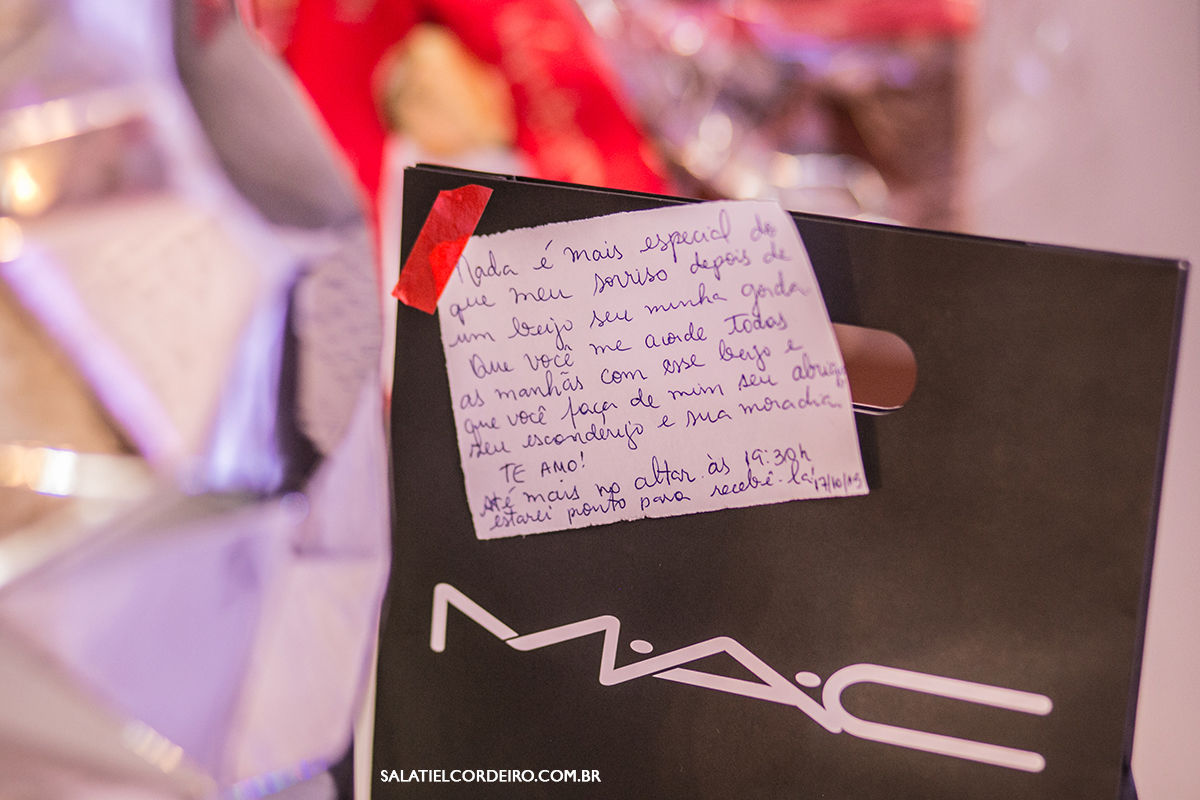 Nada é mais especial do
que meu sorriso depois de
um beijo seu minha gorda
Que você me acorde todas
as manhãs com esse beijo e
que você faça de mim seu abrigo,
seu esconderijo e sua moradia.
TE AMO!
Até mais no altar às 19:30h
estarei pronto para recebê-la! 17/10/15
MAC
SALATIELCORDEIRO.COM.BR